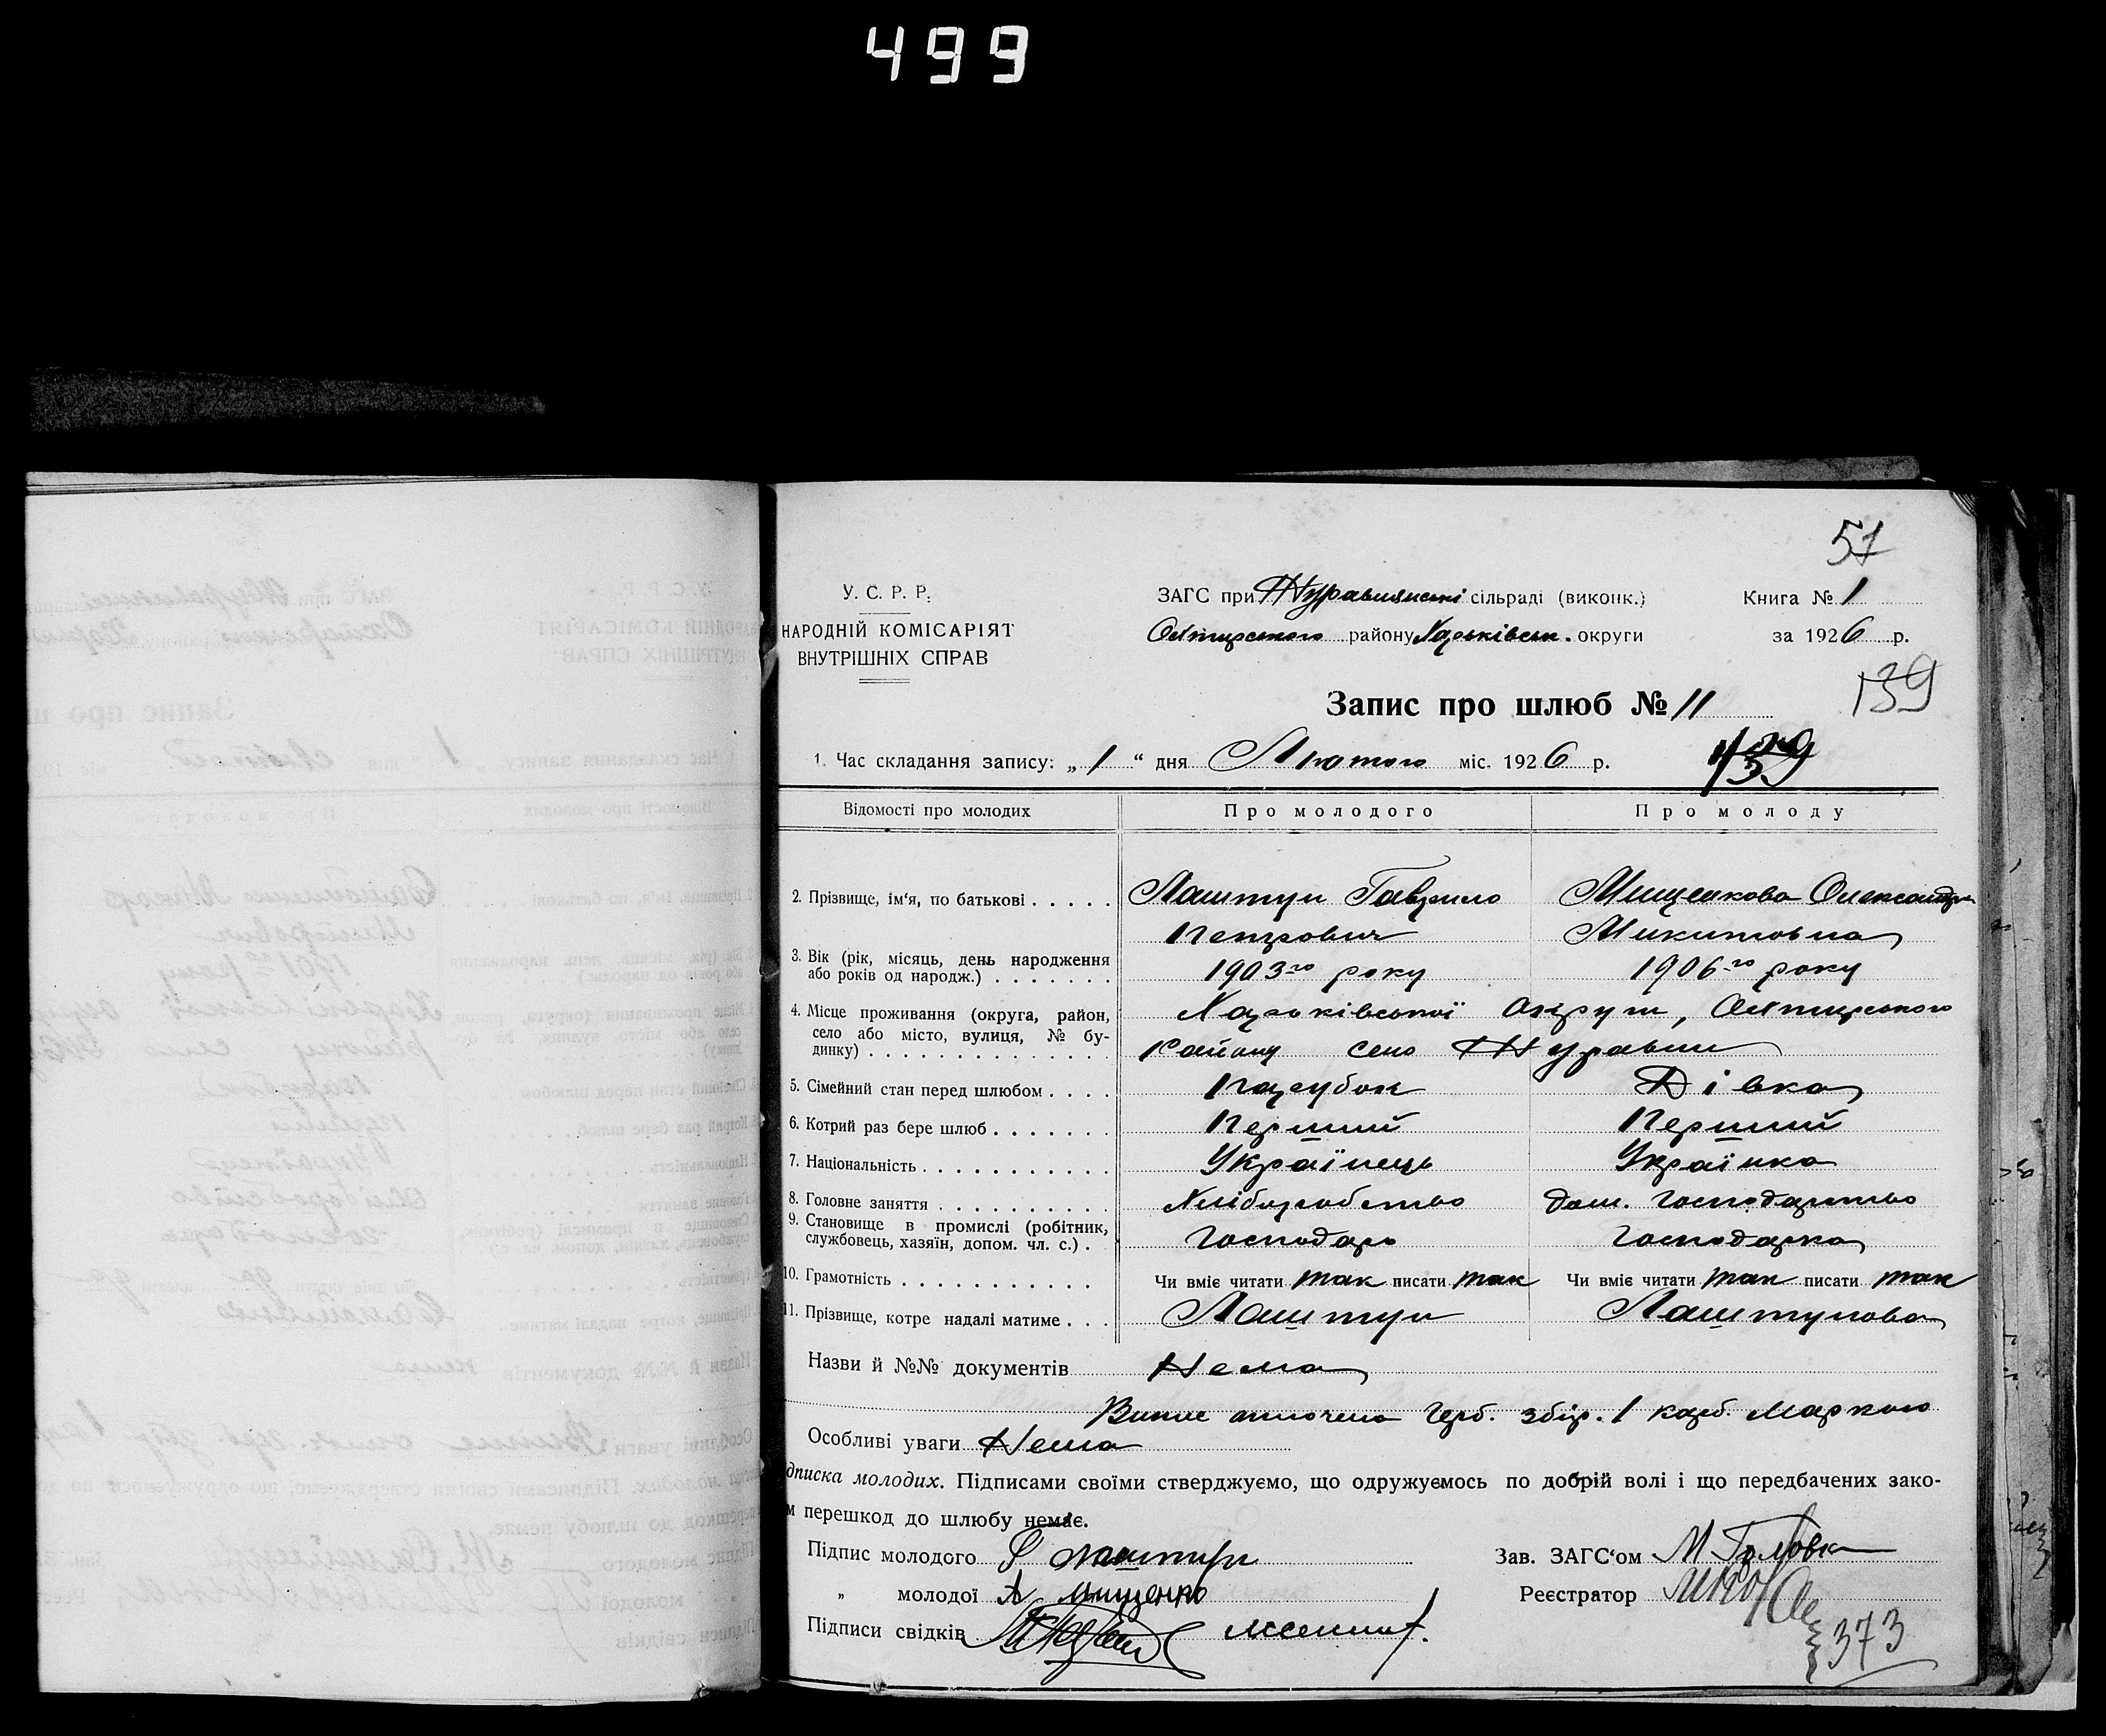 499
51
У. С. Р. Р.
НАРОДНІЙ КОМІСАРІЯТ
ВНУТРІШНІХ СПРАВ
ЗАГС при Журавлянські сільраді (виконк.)
Охтирського району Харьківськ. округи
Книга № 1
за 1926 р.
Запис про шлюб № 11
139
1. Час складання запису: „ 1 “ дня Лютого міс. 1926 р.
Відомості про молодих Про молодого Про молоду
2. Прізвище, ім‘я, по батькові . . . . . Лаштун Гаврило Мищенкова Олександра
Петрович Микитовна
3. Вік (рік, місяць, день народження
або років од народж.) . . . . . . . 1903-го року 1906-го року
4. Місце проживання (округа, район,
село або місто, вулиця, № бу-
динку) . . . . . . . . . . . . . .
Харьківської Округи, Охтирського
району село Журавли
5. Сімейний стан перед шлюбом . . . . Парубок Дівка
6. Котрий раз бере шлюб . . . . . . . Перший Перший
7. Національність . . . . . . . . . . . Українець Українка
8. Головне заняття . . . . . . . . . . Хліборобство Дом. господарство
9. Становище в промислі (робітник,
службовець, хазяїн, допом. чл. с.) . Господарь Господарка
10. Грамотність . . . . . . . . . . . Чи вміє читати так писати так Чи вміє читати так писати так
11. Прізвище, котре надалі матиме . . . Лаштун Лаштунова
Назви й №№ документів Нема
оплочено Герб. збір. 1 карб. Маркою
Особливі уваги Нема
дписка молодих. Підписами своїми стверджуємо, що одружуємось по добрій волі і що передбачених зако-
м перешкод до шлюбу немає.
Підпис молодого Лаштун
„ молодої А Мищенко
Підписи свідків
Зав. ЗАГС‘ом М Головка
Реєстратор
373